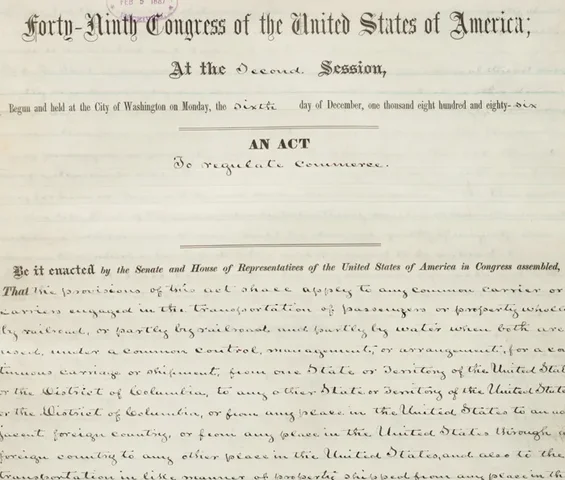 FEB 5 1887
Forty-Ninth Congress of the United States of America;
At the Second Session,
Begun and held at the City of Washington on Monday, the sixth day of December, one thousand eight hundred and eighty-six
AN ACT
To regulate commerce.
Be it enacted by the Senate and House of Representatives of the United States of America in Congress assembled,
That the provisions of this act shall apply to any common carrier or
carriers engaged in the transportation of passengers or property wholl
ly by railroad, or partly by railroad and partly by water when both are
used, under a common control, management, or arrangement, for a con
tinuous carriage or shipment, from one State or Territory of the United Stat
or the District of Columbia, to any other State or Territory of the United State
or the District of Columbia, or from any place in the United States to an ad
jacent foreign country, or from any place in the United States through a
foreign country to any other place in the United States, and also to the
transportation in like manner of property shipped from any place in th